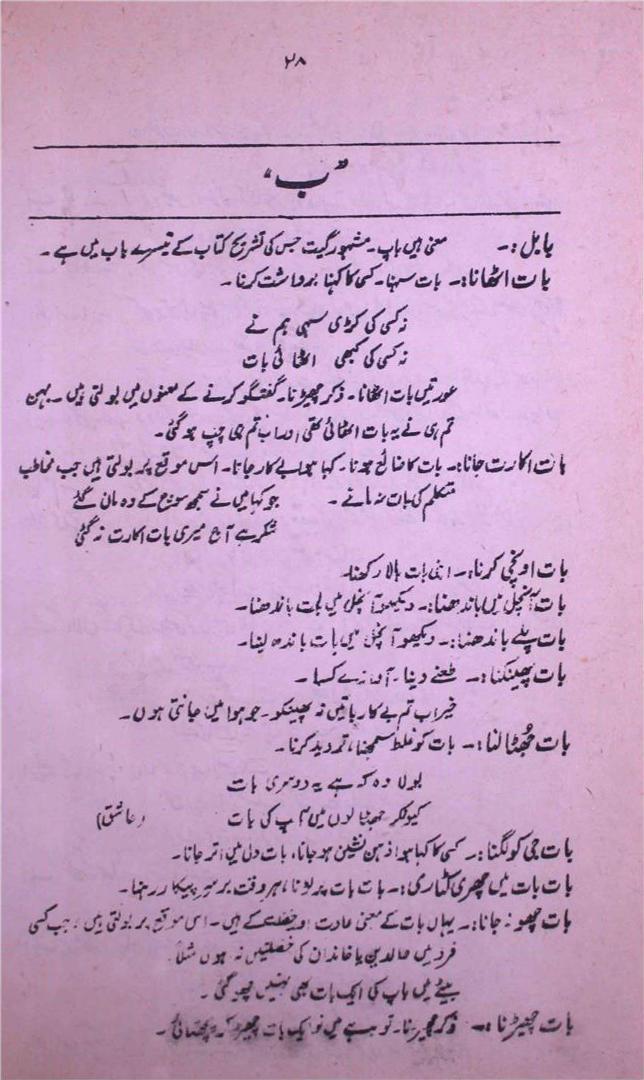 ۲۸
”ب“
بابل:- معنی ہیں باپ۔ مشہور گیت جس کی تشریح کتاب کے تیسرے باب میں ہے۔
بات اٹھانا:- بات سہنا۔ کسی کا کہنا برداشت کرنا۔
نہ کسی کی کڑی سہی ہم نے
نہ کسی کی کبھی اٹھائی بات
عورتیں بات اٹھانا۔ ذکر چھیڑنا۔ گفتگو کرنے کے معنوں میں بولتی ہیں۔ بہن
تم ہی نے یہ بات اٹھائی تھی اور اب تم ہی چپ ہو گئی۔
بات اکارت جانا:- بات کا ضائع ہونا۔ کہا ہوا بے کار جانا۔ اس موقع پر بولتی ہیں جب مخاطب
متکلم کی بات نہ مانے۔ جو کہا میں نے سمجھ سوچ کے وہ مان گئے
شکر ہے آج میری بات اکارت نہ گئی
بات اونچی کرنا:- اپنی بات بالا رکھنا۔
بات آنچل میں باندھنا:- دیکھو آنچل میں بات باندھنا۔
بات پلے باندھنا:- دیکھو آنچل میں بات باندھ لینا۔
بات پھینکنا:- طعنے دینا۔ آوازے کسنا۔
خیر اب تم بے کار باتیں نہ پھینکو۔ جو ہوا میں جانتی ہوں۔
بات جُھٹالنا:- بات کو غلط سمجھنا، تردید کرنا۔
بولا وہ کہ ہے یہ دوسری بات
کیونکر جھٹالوں میں آپ کی بات (عاشق)
بات جی کو لگنا:- کسی کا کہا ہوا ذہن نشین ہو جانا، بات دل میں اتر جانا۔
بات بات میں چھری کٹاری:- بات بات پر لڑنا، ہر وقت برسرِ پیکار رہنا۔
بات چھو نہ جانا:- یہاں بات کے معنی عادت اور خصلت کے ہیں۔ اس موقع پر بولتی ہیں، جب کسی
فرد میں والدین یا خاندان کی خصلتیں نہ ہوں مثلاً
بیٹے میں باپ کی ایک بات بھی نہیں چھو گئی۔
بات چھیڑنا:- ذکر چھیڑنا۔ توبہ ہے میں تو ایک بات چھیڑ کر پچھتائی۔